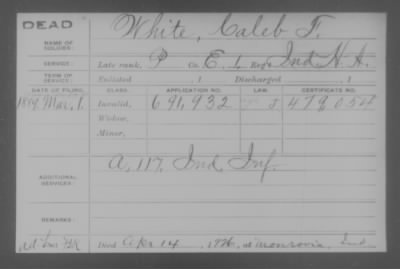 DEAD
White, Caleb T.
NAME OF SOLDIER:
SERVICE: Late rank, P Co. E, 1 Reg't Ind H.A.
TERM OF SERVICE: Enlisted , 1 Discharged , 1
DATE OF FILING. CLASS. APPLICATION NO. LAW. CERTIFICATE NO.
1889 Mar. 1. Invalid, 691,932 J 479054
Widow,
Minor,
A, 117, Ind Inf.
ADDITIONAL SERVICES:
REMARKS:
Died Apr 14, 1926, at Monrovia, Ind